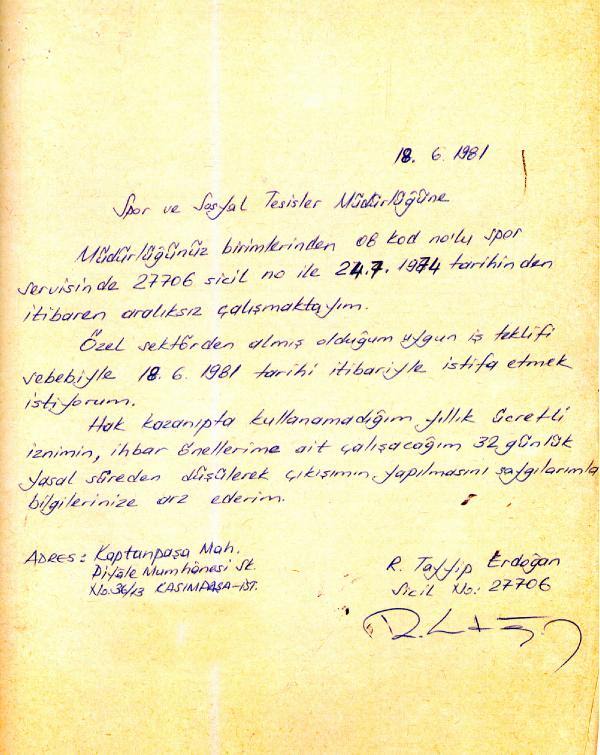 18. 6. 1981
Spor ve Sosyal Tesisler Müdürlüğüne
Müdürlüğünüz birimlerinden 08 kod no'lu spor
servisinde 27706 sicil no ile 24.7.1974 tarihinden
itibaren aralıksız çalışmaktayım.
Özel sektörden almış olduğum uygun iş teklifi
sebebiyle 18. 6. 1981 tarihi itibariyle istifa etmek
istiyorum.
Hak kazanıpta kullanamadığım yıllık ücretli
iznimin, ihbar önellerime ait çalışacağım 32 günlük
yasal süreden düşülerek çıkışımın yapılmasını saygılarımla
bilgilerinize arz ederim.
ADRES: Kaptanpaşa Mah.
Piyâle Mumhânesi Sk.
No: 36/13 KASIMPAŞA-İST.
R. Tayyip Erdoğan
Sicil No.: 27706